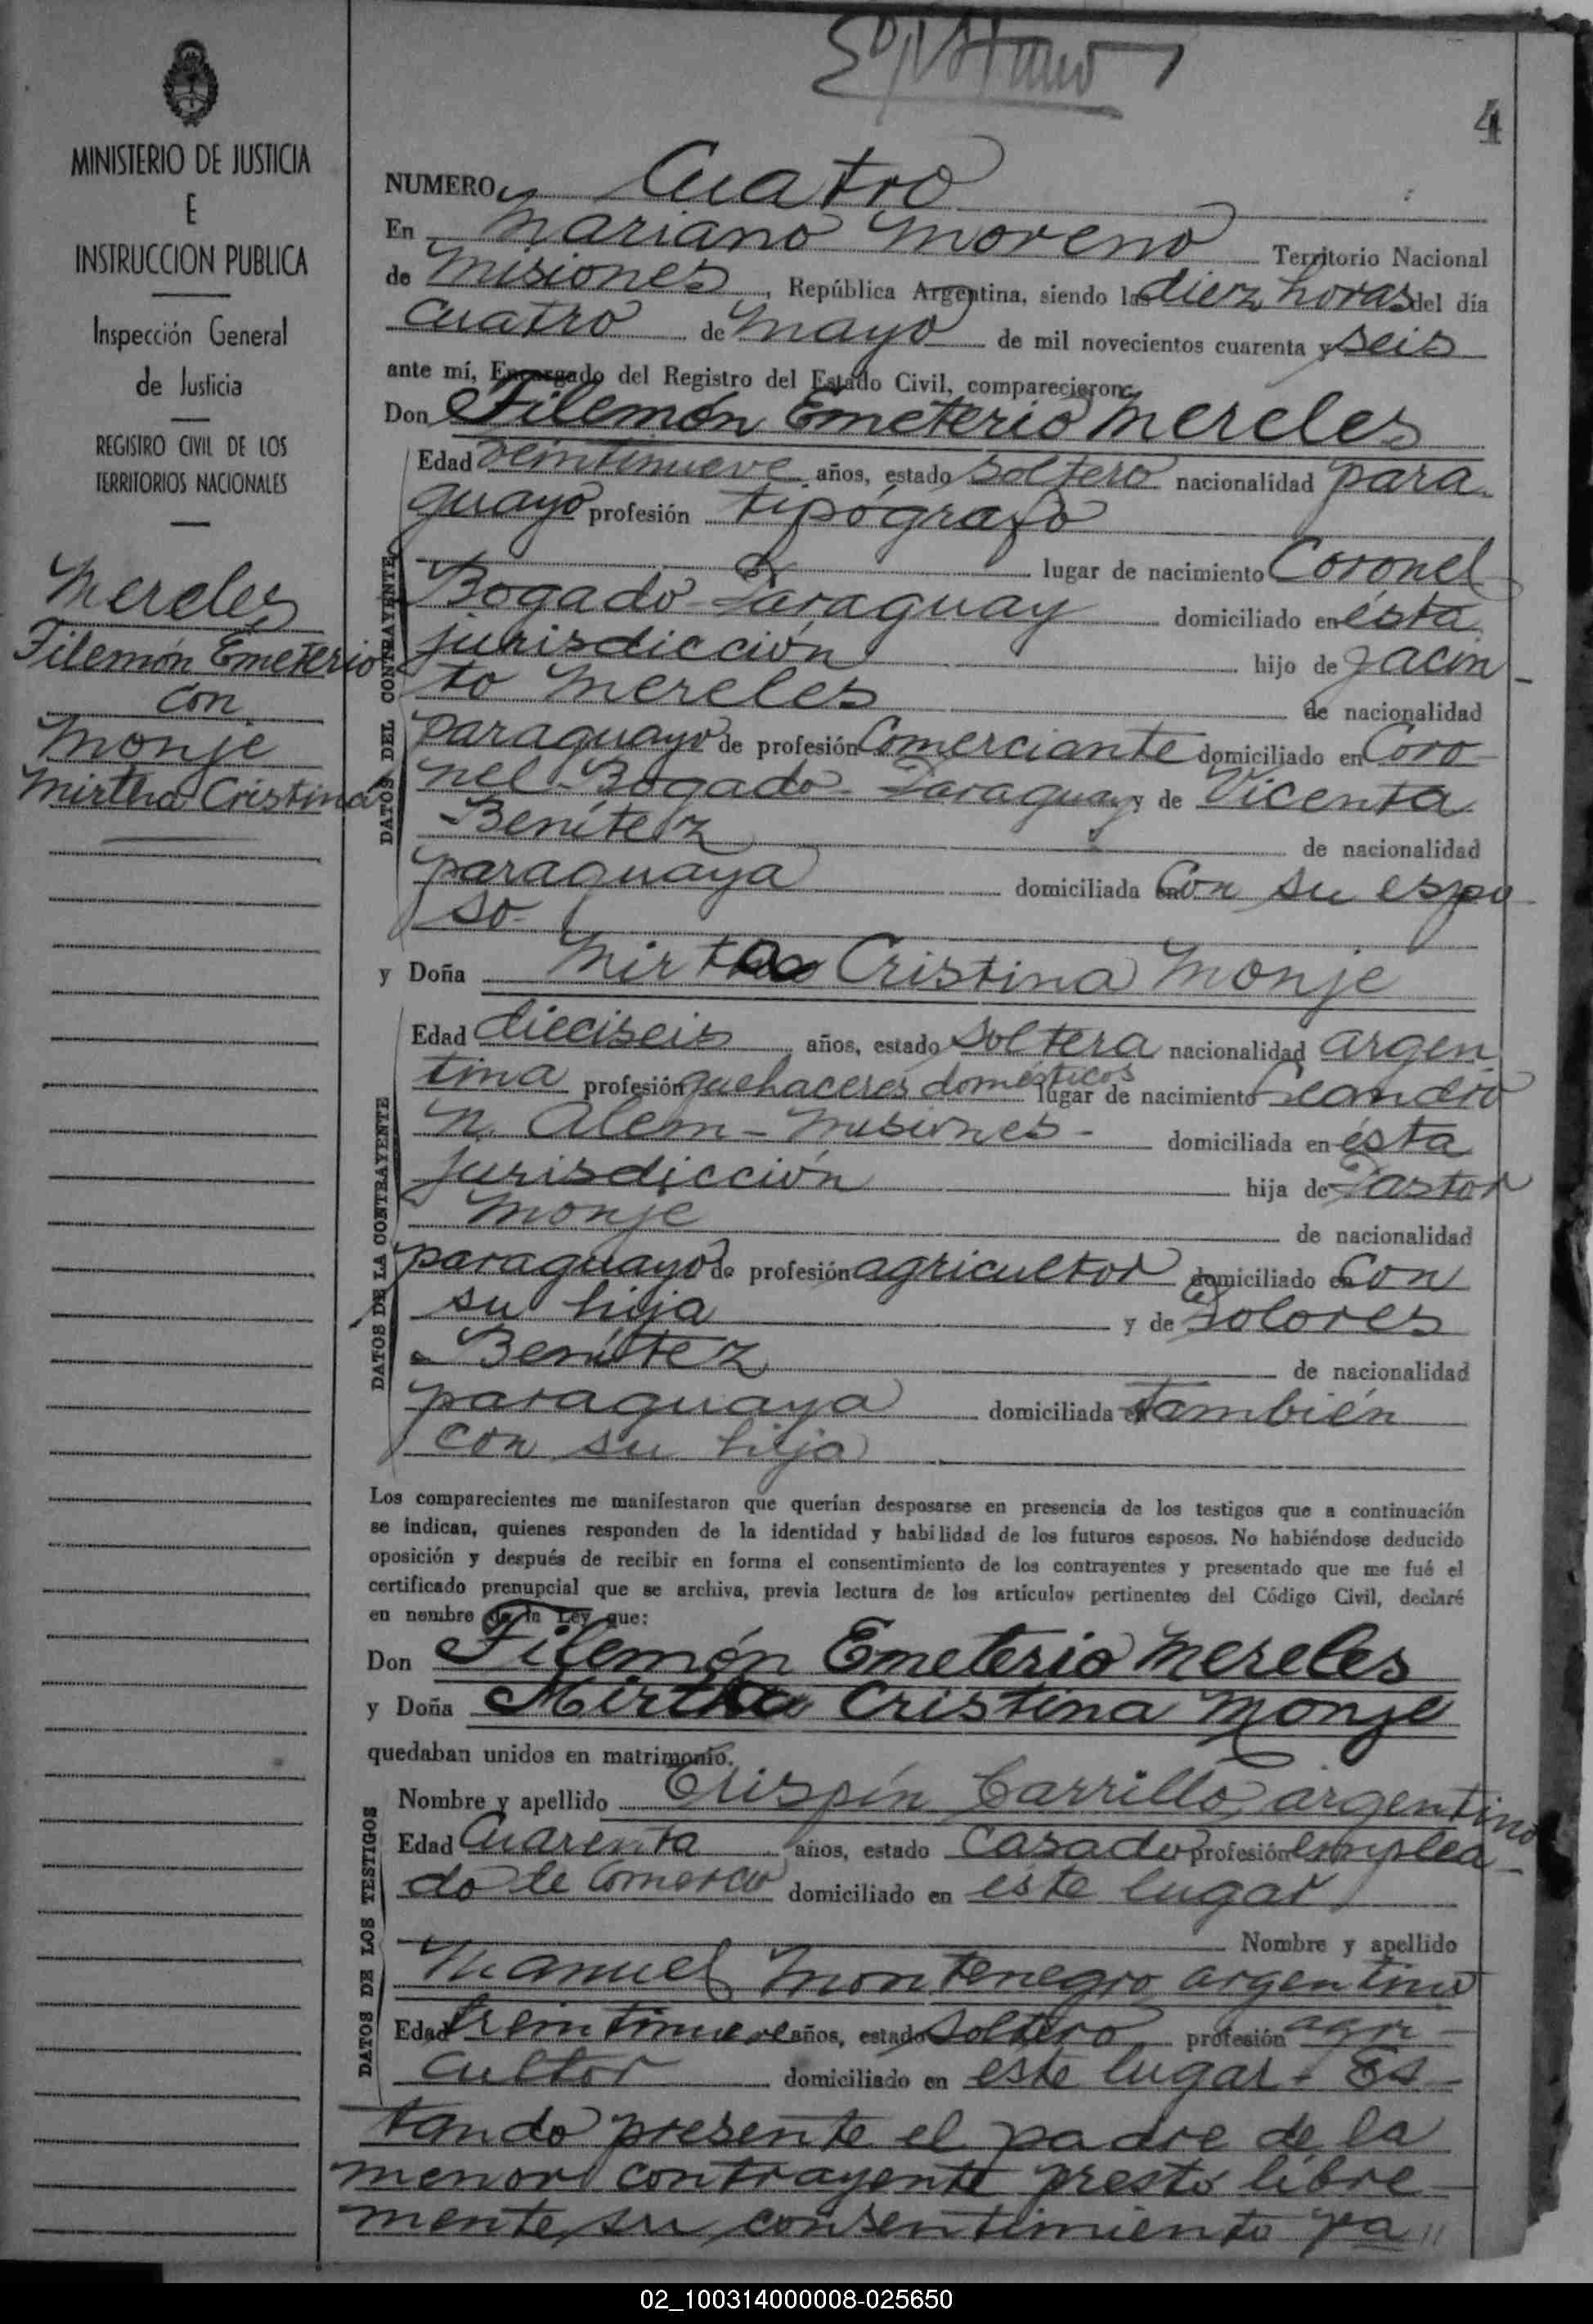 4
MINISTERIO DE JUSTICIA
E
INSTRUCCION PUBLICA
Inspección General
de Justicia
REGISTRO CIVIL DE LOS
TERRITORIOS NACIONALES
Mereles
Filemón Emeterio
con
Monje
Mirtha Cristina
NUMERO Cuatro
En Mariano Moreno Territorio Nacional
de Misiones, República Argentina, siendo las diez horas del día
cuatro de Mayo de mil novecientos cuarenta y seis
ante mí, Encargado del Registro del Estado Civil, comparecieron:
Don Filemón Emeterio Mereles
DATOS DEL CONTRAYENTE
Edad veintinueve años, estado soltero nacionalidad para
guayo profesión tipógrafo
lugar de nacimiento Coronel
Bogado-Paraguay domiciliado en ésta
jurisdicción hijo de Jacin
to Mereles de nacionalidad
paraguayo de profesión Comerciante domiciliado en Coro
nel Bogado-Paraguay y de Vicenta
Benítez de nacionalidad
paraguaya domiciliada en Con su espo
so-
y Doña Mirtha Cristina Monje
DATOS DE LA CONTRAYENTE
Edad dieciseis años, estado soltera nacionalidad argen
tina profesión quehaceres domésticos lugar de nacimiento Leandro
N. Alem-Misiones- domiciliada en ésta
jurisdicción hija de Pastor
Monje de nacionalidad
paraguayo de profesión agricultor domiciliado en Con
su hija y de Dolores
Benítez de nacionalidad
paraguaya domiciliada en también
con su hija
Los comparecientes me manifestaron que querían desposarse en presencia de los testigos que a continuación
se indican, quienes responden de la identidad y habilidad de los futuros esposos. No habiéndose deducido
oposición y después de recibir en forma el consentimiento de los contrayentes y presentado que me fué el
certificado prenupcial que se archiva, previa lectura de los artículos pertinentes del Código Civil, declaré
en nombre de la Ley que:
Don Filemón Emeterio Mereles
y Doña Mirtha Cristina Monje
quedaban unidos en matrimonio.
DATOS DE LOS TESTIGOS
Nombre y apellido Crispín Carrillo, argentino
Edad Cuarenta años, estado casado profesión emplea-
do de Comercio domiciliado en éste lugar
Nombre y apellido
Manuel Montenegro argentino
Edad treintinueve años, estado soltero profesión agri-
cultor domiciliado en este lugar - Es
tando presente el padre de la
menor contrayente prestó libre-
mente su consentimiento pa"
02_100314000008-025650